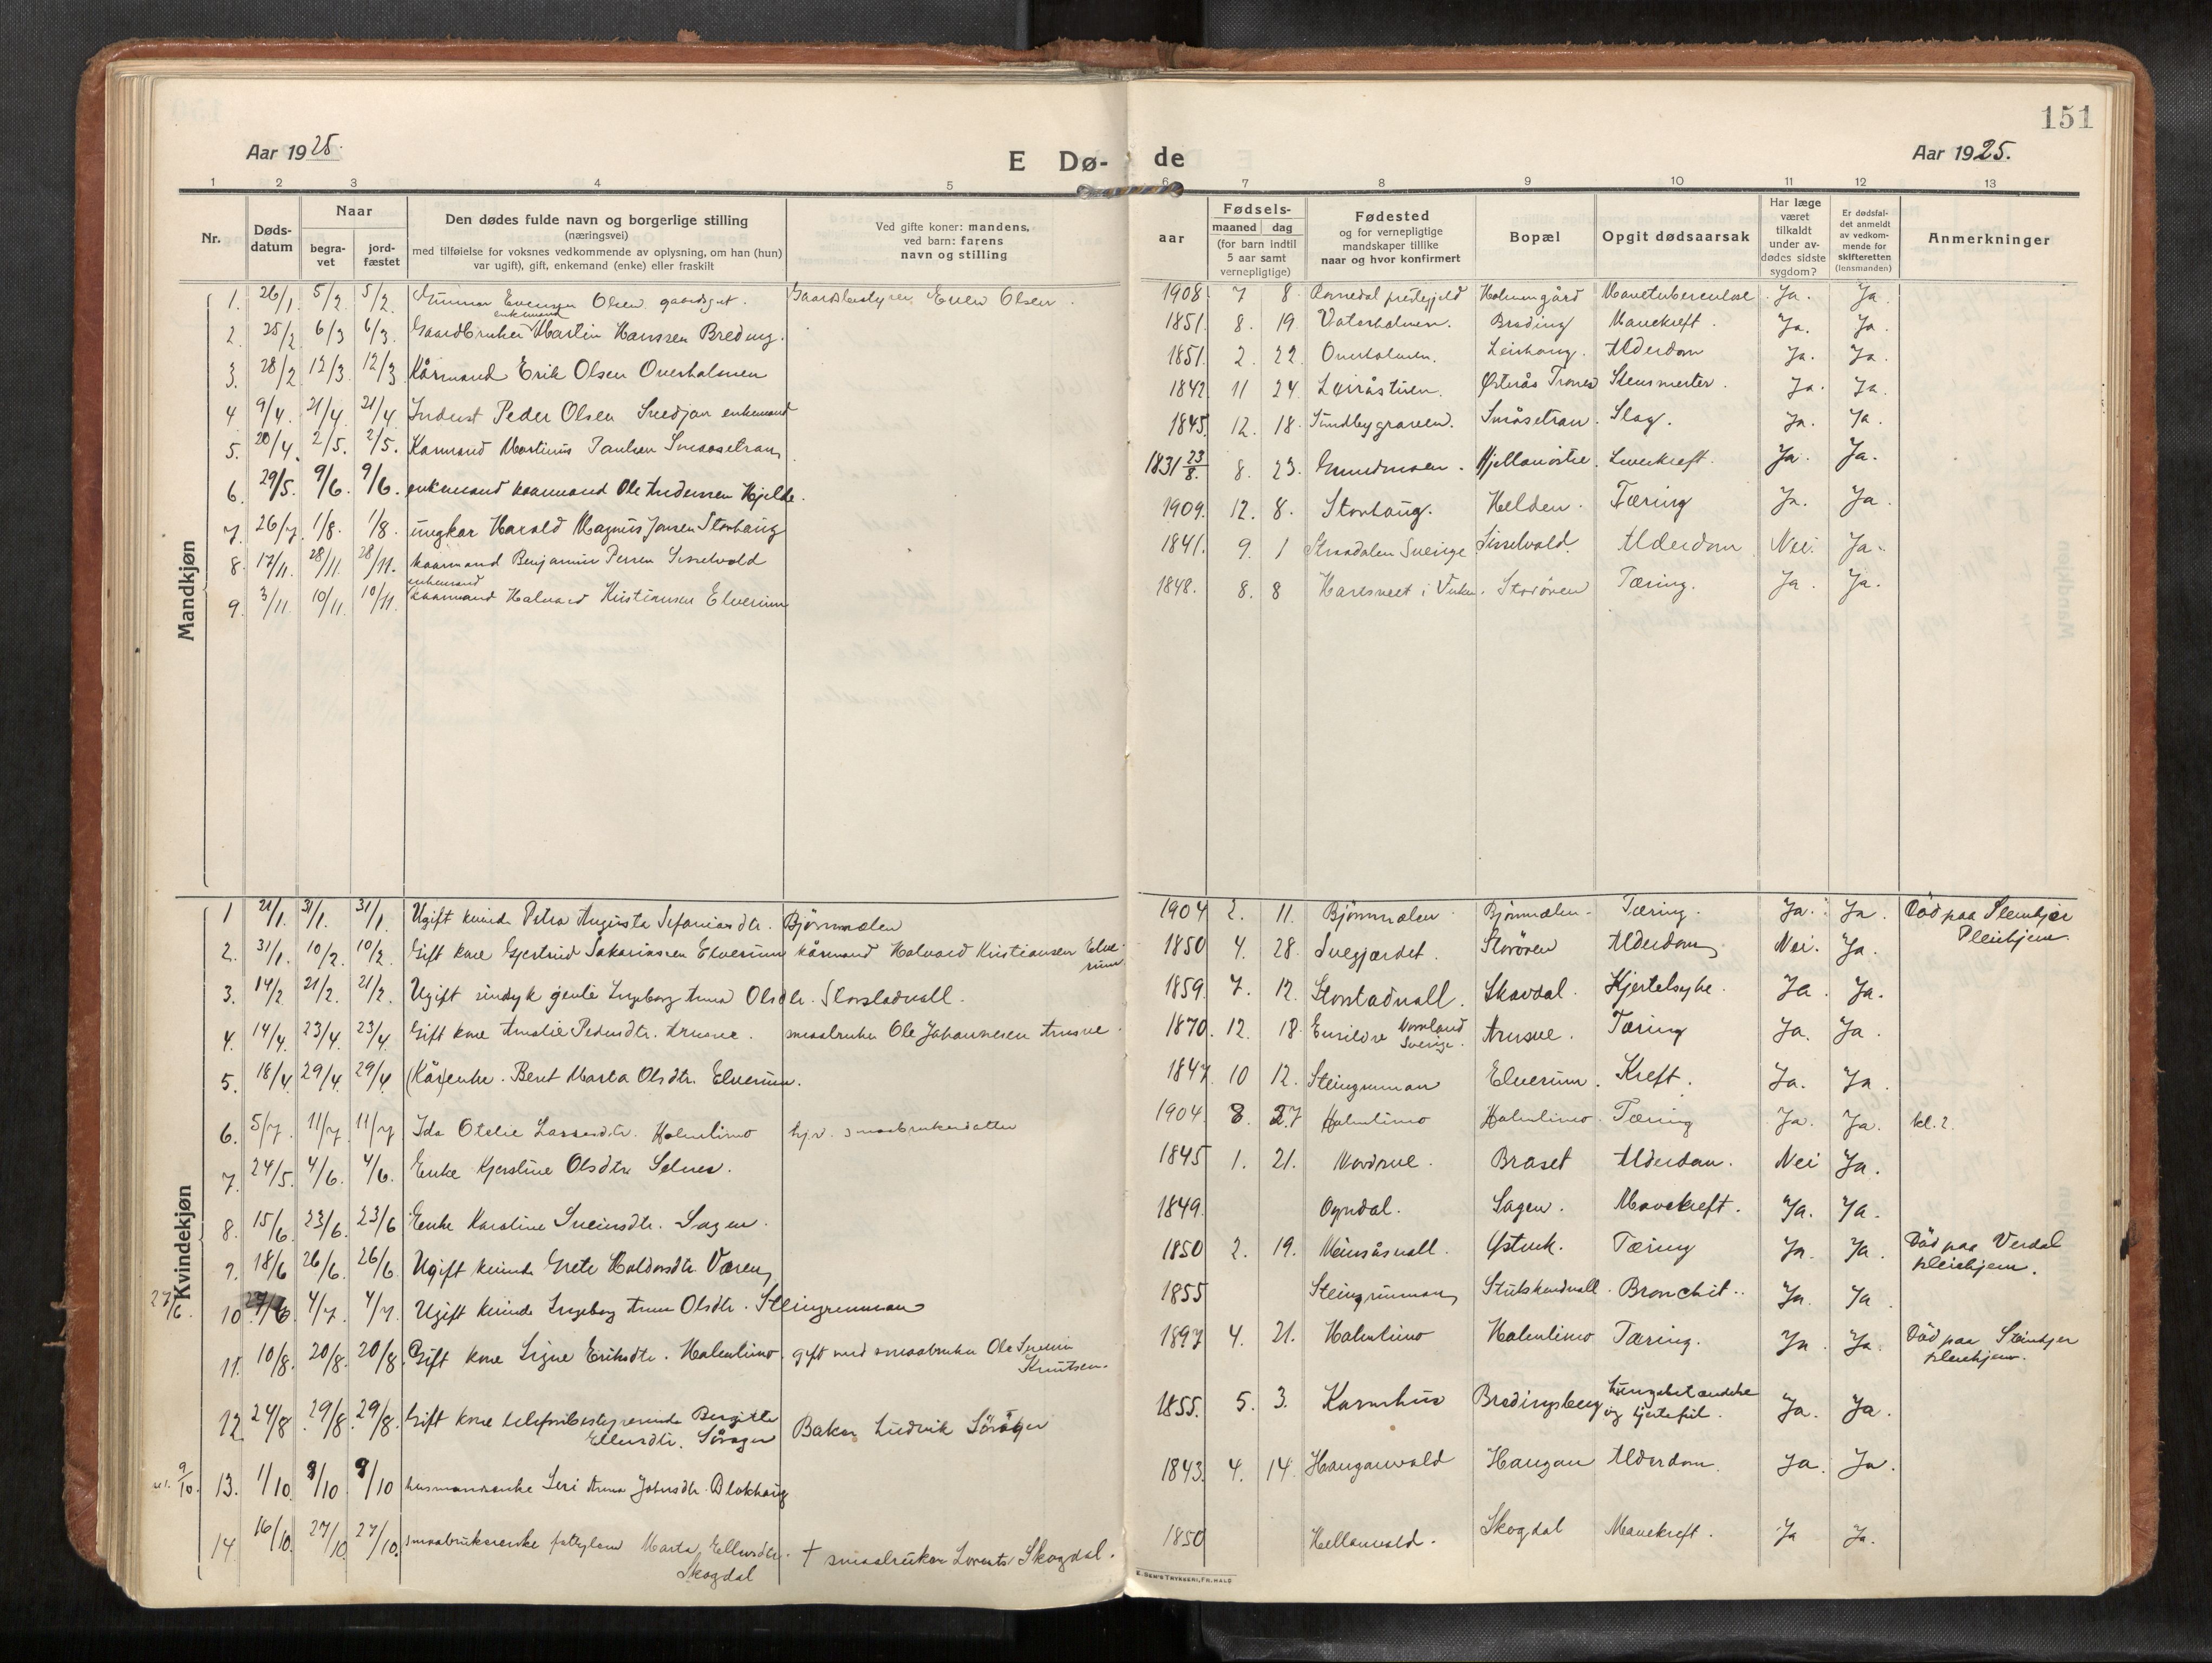 151
Aar 1925.
E Dø- de
Aar 1925.
1 2 3 4 5 6 7 8 9 10 11 12 13
Nr.
Døds-
datum
Naar
begra-
vet
jord-
fæstet
Den dødes fulde navn og borgerlige stilling
(næringsvei)
med tilføielse for voksnes vedkommende av oplysning, om han (hun)
var ugift), gift, enkemand (enke) eller fraskilt
Ved gifte koner: mandens,
ved barn: farens
navn og stilling
aar
Fødsels-
maaned dag
(for barn indtil
5 aar samt
vernepligtige)
Fødested
og for vernepligtige
mandskaper tillike
naar og hvor konfirmert
Bopæl
Opgit dødsaarsak
Har læge
været
tilkaldt
under av-
dødes sidste
sygdom?
Er dødsfal-
det anmeldt
av vedkom-
mende for
skifteretten
(lensmanden)
Anmerkninger
Mandkjøn
1. 26/1 5/2 5/2. Gunnar Evensen Olsen gaardsgut. Gaardbestyrer Even Olsen. 1908 7 8 prestegjeld Holmengård Ja. Ja
enkemand
2. 25/2 6/3 6/3. Gaardbruker Martin Hanssen Breding. 1851. 8. 19 Vaterholmen. Breding Mavekreft. Ja. Ja
3. 28/2 12/3 12/3 Kårmand Erik Olsen Overholmen 1851. 2. 22. Overholmen. Alderdom Ja. Ja.
4 9/4. 21/4 21/4 Inderst Peder Olsen enkemand 1842 11 24 Østerås Ja. Ja.
5. 20/4. 2/5. 2/5. Karmand Martinus Paulsen Smaasetran 1845. 12. 18. Sundbygraven. Småsetran. Slag. Ja. Ja.
6. 29/5. 9/6. 9/6. enkemand kaarmand Ole Andersen Hjelde. 1831 23/8. 8. 23. Hjellanøstre. Leverkreft. Ja. Ja.
7. 26/7. 1/8. 1/8. ungkar Harald Magnus Jensen Storhaug 1909. 12. 8. Storhaug. Helden. Tæring Ja. Ja.
8. 17/11. 28/11. 28/11. kaarmand Benjamin Persen Sisselvold 1841. 9. 1 Sverige Sisselvold. Alderdom Nei. Ja.
enkemand
9. 3/11. 10/11. 10/11. kaarmand Halvard Kristiansen Elverum 1848. 8. 8 i Vuku. Storøven Tæring. Ja. Ja.
Kvindekjøn
1 21/1. 31/1. 31/1. Ugift kvinde Petra Augusta Sefaniasdtr. Bjørnmælen 1904 2. 11. Bjørnmælen Bjørnmælen. Tæring. Ja. Ja. Död paa Steinkjer
Pleiehjem.
2. 31/1. 10/2. 10/2. Gift kone Gjertrud Sakariassen Elverum kårmand Halvard Kristiansen Elve-
rum 1850 4. 28. Svegjærdet. Storøven Alderdom Nei. Ja.
3. 14/2 21/2. 21/2. Ugift sindsyk gjente Ingeborg Anna Olsdtr. Storstadvall. 1859. 7. 12. Storstadvall. Skavdal. Hjertelamhe. Ja. Ja.
4. 14/4. 23/4. 23/4. Gift kone Amalie Pedersdtr. Arnsve. smaabruker Ole Johannesen Arnsve. 1870. 12. 18. Norrland
Sverige. Arnsve. Tæring Ja. Ja.
5. 18/4. 29/4. 29/4. (Kår)enke. Beret Marta Olsdtr. Elverum. 1847. 10 12. Steingrunman Elverum. Kreft. Ja. Ja.
6. 5/7. 11/7 11/7 Ida Otelie Lassesdtr. Holmlimo hjv. smaabrukerdatter 1904. 8. 27 Holmlimo Holmlimo. Tæring Ja. Ja. kl. 2.
7. 24/5. 4/6. 4/6. Enke Kjerstine Olsdtr. Selnes. 1845 1. 21. Nordsve. Braset Alderdom. Nei Ja.
8. 15/6. 23/6 23/6 Enke Karoline Sveinsdtr. Sagen. 1849. Ogndal. Sagen. Mavekreft. Ja. Ja.
9. 18/6 26/6 26/6 Ugift kvinde Grete Haldorsdtr. Væren 1850 2. 19. Østvik. Tæring Ja. Ja. Död paa Verdal
pleiehjem.
27/6. 10. 27/6 4/7 4/7. Ugift kvinde Ingeborg Anna Olsdtr. Steingrunman 1855 Steingrunman Stutskardvall. Bronchit.. Ja. Ja
11. 10/8. 20/8. 20/8. Gift kone Signe Eriksdtr. Holmlimo. gift med smaabruker Ole Severin
Knutsen. 1897 4. 21. Holmlimo Holmlimo Tæring. Ja. Ja. Död paa Steinkjer
pleiehjem.
12. 24/8 29/8. 29/8. Gift kone telefonbestyrerinde Bergitte
Ellersdtr. Sörager Baker Ludvik Söråger 1855. 5. 3. Karmhus Bredingsberg Lungebetændelse
og hjertefeil. Ja. Ja.
9/10. 13. 1/10. 9/10 9/10 husmandsenke Seri Anna Johnsdtr. Blokhaug 1843. 4. 14. Hauganvold Haugan Alderdom. Ja. Ja.
14. 16/10. 27/10 27/10. smaabrukerenke Marta Ellersdtr.
Skogdal † smaabruker Lorents Skogdal. 1850 Hellanvold. Skogdal Mavekreft. Ja Ja.
E. SEM'S TRYKKERI, FR.HALD